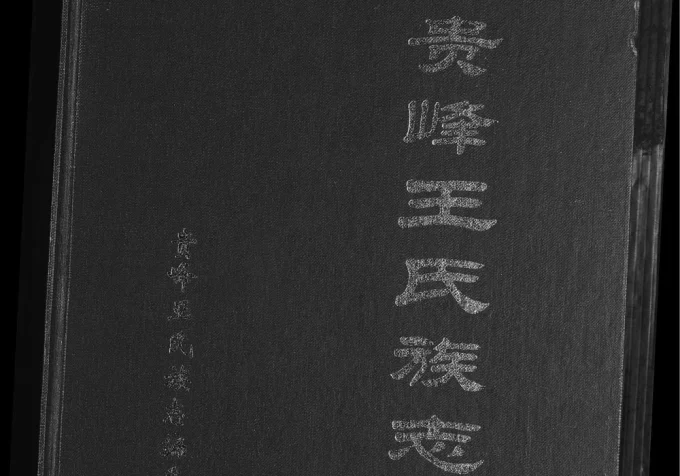 贵峰王氏族志
贵峰王氏族志编